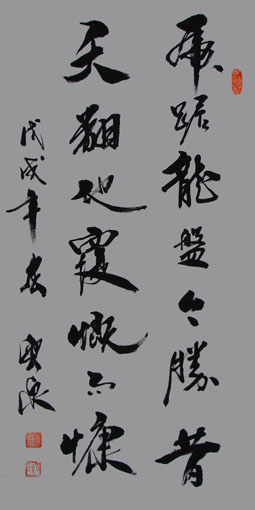 虎踞龍盤今勝昔
天翻地覆慨而慷
戊戌年